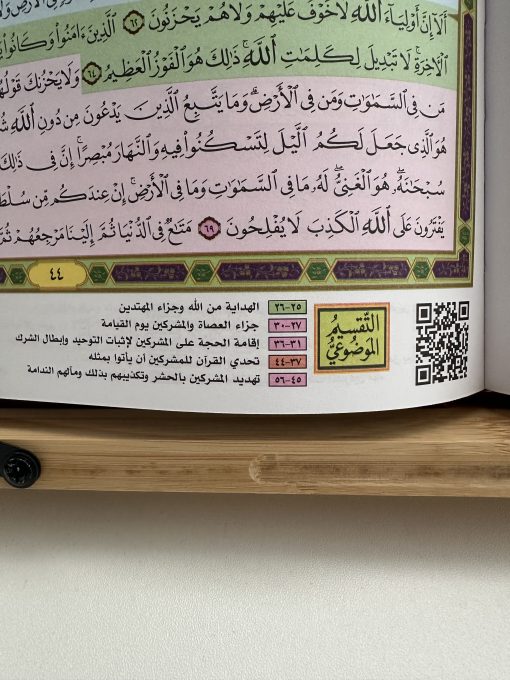 أَلَآ إِنَّ أَوْلِيَآءَ ٱللَّهِ لَا خَوْفٌ عَلَيْهِمْ وَلَا هُمْ يَحْزَنُونَ ٦٢ ٱلَّذِينَ ءَامَنُوا۟ وَكَانُوا۟
ٱلْـَٔاخِرَةِ ۚ لَا تَبْدِيلَ لِكَلِمَـٰتِ ٱللَّهِ ۚ ذَٰلِكَ هُوَ ٱلْفَوْزُ ٱلْعَظِيمُ ٦٤ وَلَا يَحْزُنكَ قَوْلُهُ
مَن فِى ٱلسَّمَـٰوَٰتِ وَمَن فِى ٱلْأَرْضِ ۗ وَمَا يَتَّبِعُ ٱلَّذِينَ يَدْعُونَ مِن دُونِ ٱللَّهِ
هُوَ ٱلَّذِى جَعَلَ لَكُمُ ٱلَّيْلَ لِتَسْكُنُوا۟ فِيهِ وَٱلنَّهَارَ مُبْصِرًا ۚ إِنَّ فِى ذَٰلِكَ
سُبْحَـٰنَهُۥ ۖ هُوَ ٱلْغَنِىُّ ۖ لَهُۥ مَا فِى ٱلسَّمَـٰوَٰتِ وَمَا فِى ٱلْأَرْضِ ۚ إِنْ عِندَكُم مِّن سُلْطَـ
يَفْتَرُونَ عَلَى ٱللَّهِ ٱلْكَذِبَ لَا يُفْلِحُونَ ٦٩ مَتَـٰعٌ فِى ٱلدُّنْيَا ثُمَّ إِلَيْنَا مَرْجِعُهُمْ ثُمَّ
٤٤
التَّقسيمُ
المَوضُوعيُّ
٢٥-٢٦ الهداية من الله وجزاء المهتدين
٢٧-٣٠ جزاء العصاة والمشركين يوم القيامة
٣١-٣٦ إقامة الحجة على المشركين لإثبات التوحيد وإبطال الشرك
٣٧-٤٤ تحدي القرآن للمشركين أن يأتوا بمثله
٤٥-٥٦ تهديد المشركين بالحشر وتكذيبهم بذلك ومآلهم الندامة